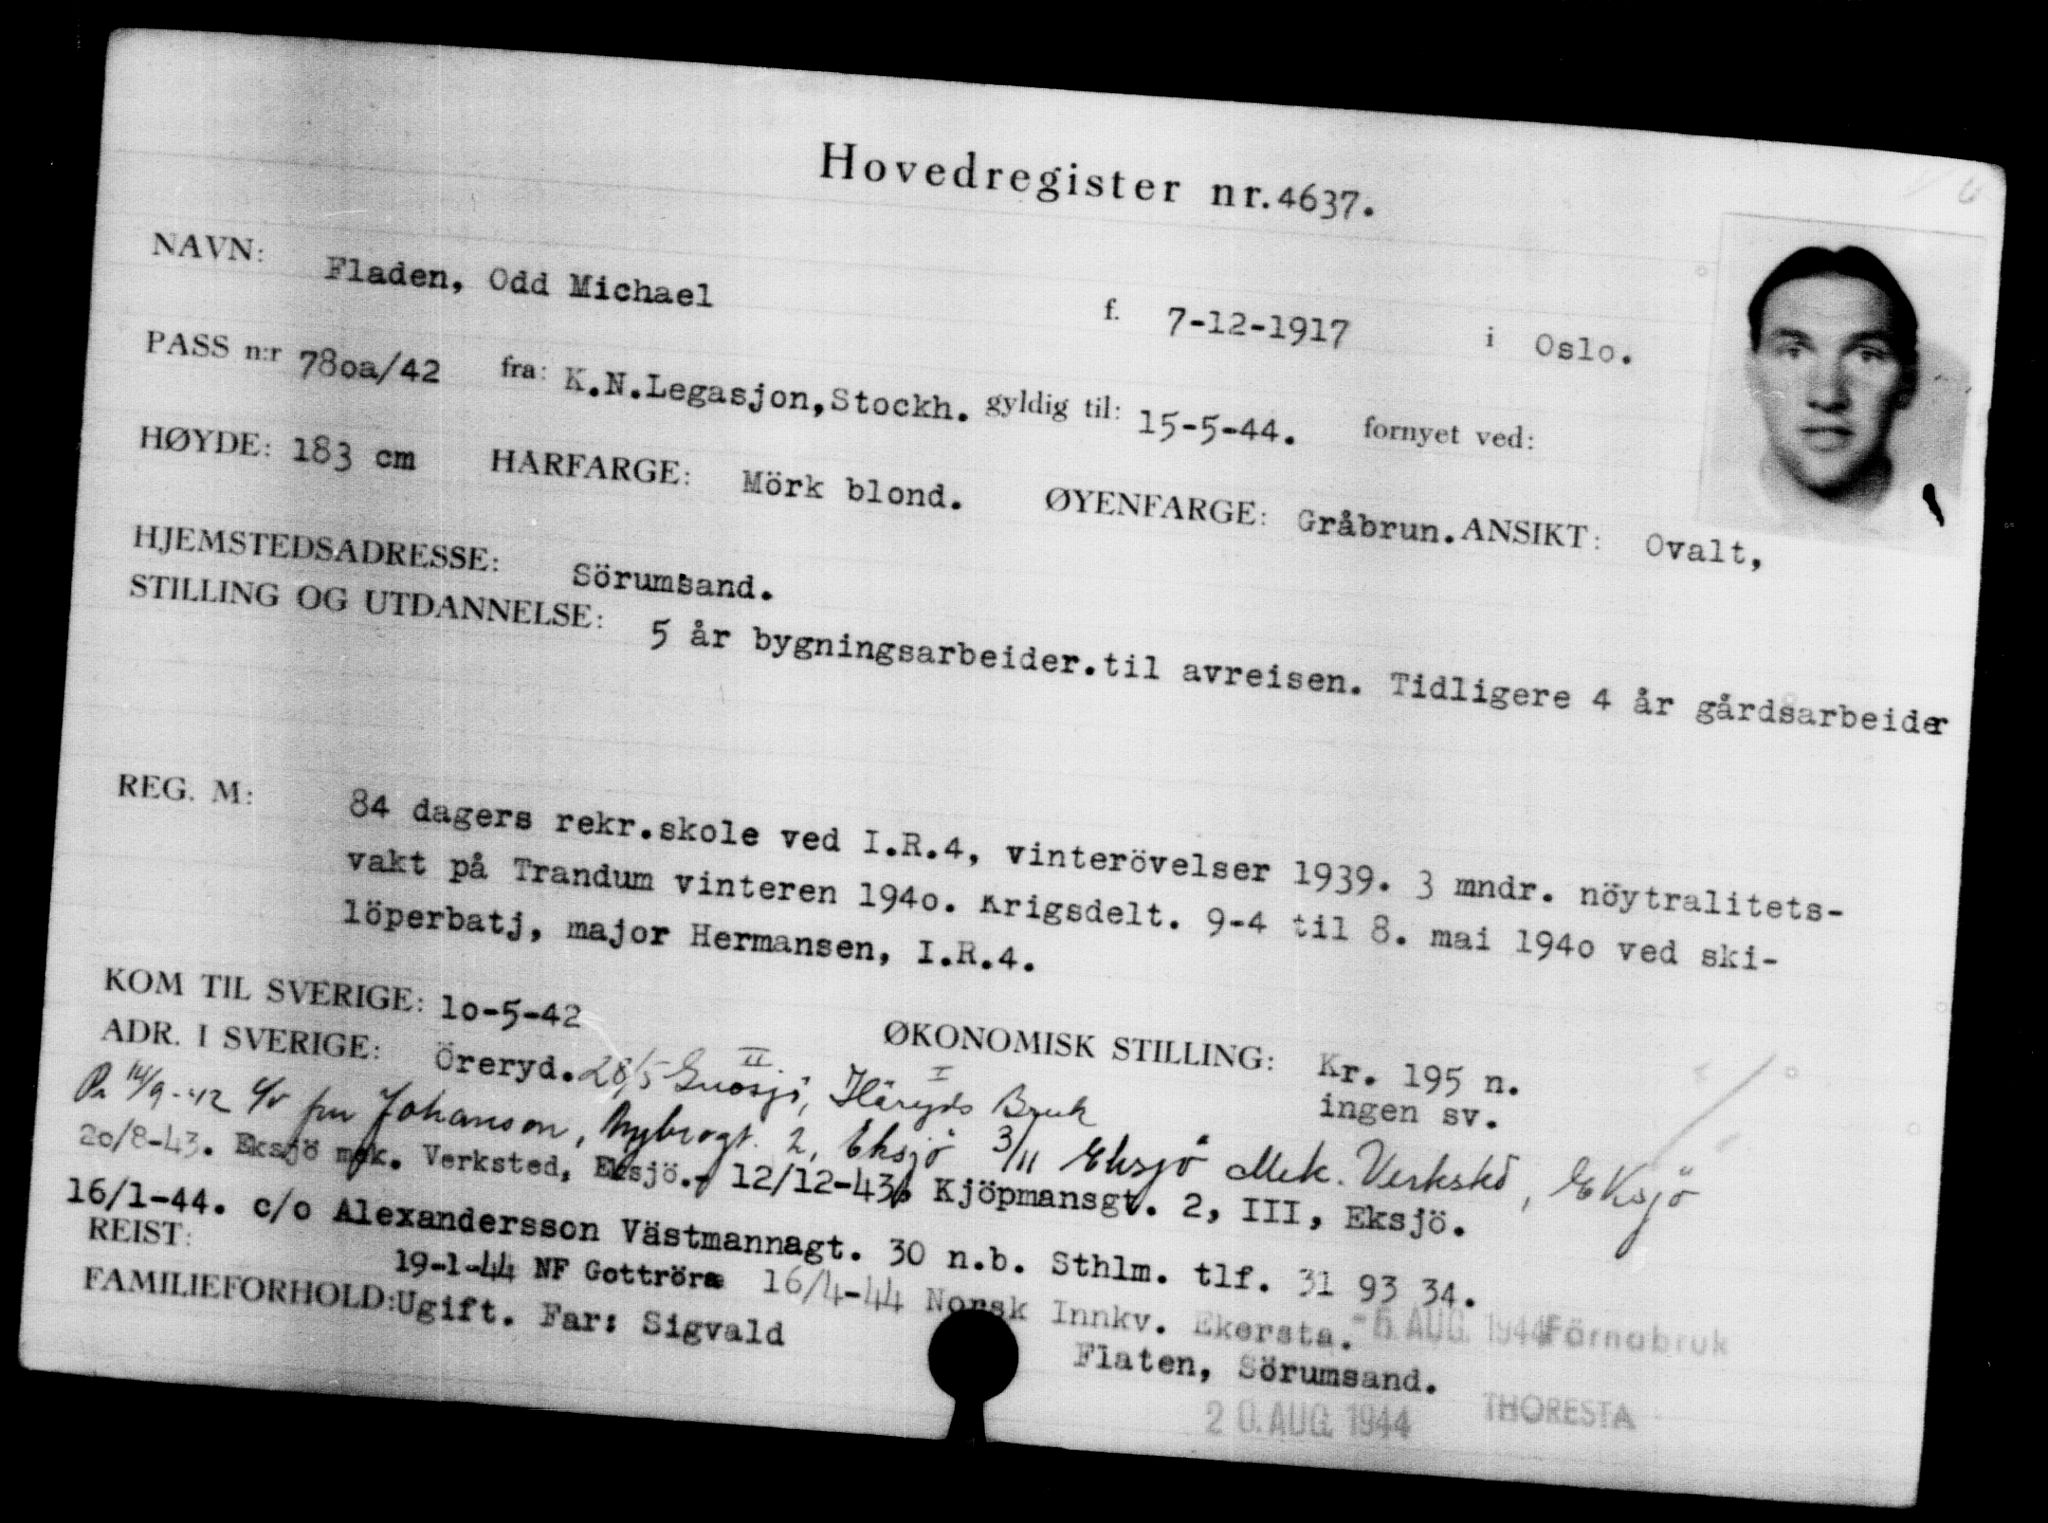 Hovedregister nr. 4637.
NAVN: Fladen, Odd Michael f. 7-12-1917 i Oslo.
PASS n:r 780a/42 fra: K.N.Legasjon,Stockh. gyldig til: 15-5-44. fornyet ved:
HØYDE: 183 cm HARFARGE: Mörk blond. ØYENFARGE: Gråbrun. ANSIKT: Ovalt,
HJEMSTEDSADRESSE: Sörumsand.
STILLING OG UTDANNELSE: 5 år bygningsarbeider.til avreisen. Tidligere 4 år gårdsarbeider
REG. M: 84 dagers rekr.skole ved I.R.4, vinterövelser 1939. 3 mndr. nöytralitets-
vakt på Trandum vinteren 1940. Krigsdelt. 9-4 til 8. mai 1940 ved ski-
löperbatj, major Hermansen, I.R.4.
KOM TIL SVERIGE: 10-5-42 ØKONOMISK STILLING: Kr. 195 n.
ingen sv.
ADR. I SVERIGE: Öreryd. 28/5 Gnosjö II, Häryds I Bruk
14/9-42 c/o fru Johanson, 2, Eksjö 3/11 Eksjö Mek. Verkstd, Eksjö
20/8-43. Eksjö mek. Verksted, Eksjö.- 12/12-43. Kjöpmansgt. 2, III, Eksjö.
16/1-44. c/o Alexandersson Västmannagt. 30 n.b. Sthlm. tlf. 31 93 34.
REIST: 19-1-44 NF Gottröra 16/4-44 Norsk Innkv. Ekersta. -6. AUG. 1944 Förnabruk
FAMILIEFORHOLD: Ugift. Far: Sigvald Flaten, Sörumsand.
20. AUG. 1944 THORESTA